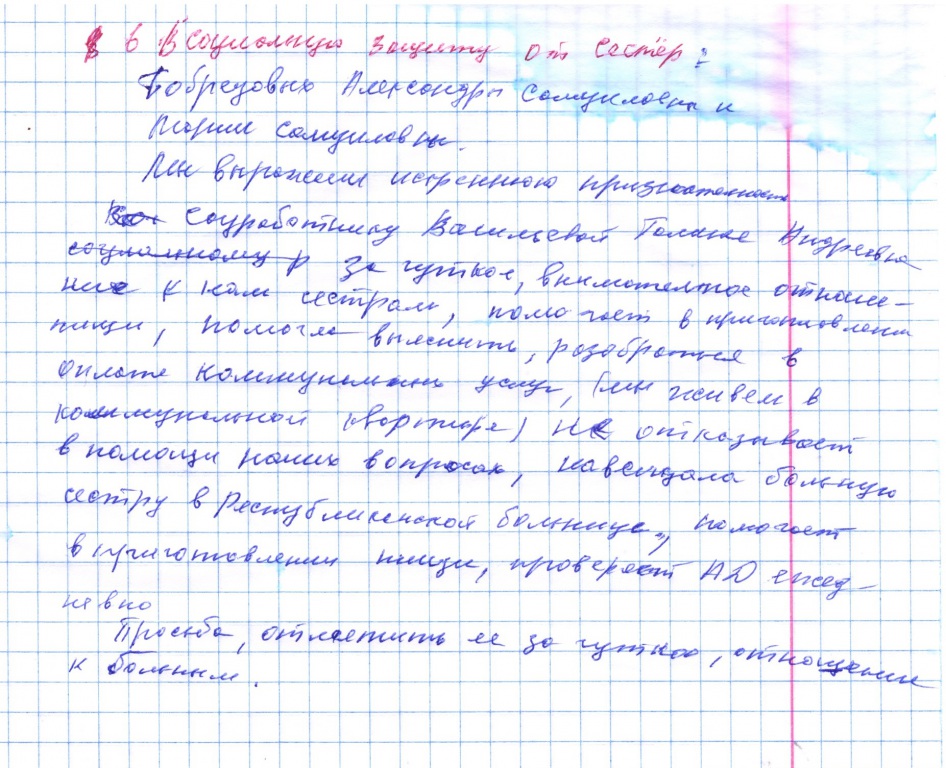 в Социальную защиту от сестёр:
Бобрецовых Александры Самуиловны и
Марии Самуиловны.
Мы выражаем искреннюю признательность
соцработнику Васильевой Галине Андреевне
социальному р за чуткое, внимательное отноше-
ние к нам сестрам, помогает в приготовлении
пищи, помогла выяснить, разобраться в
оплате коммунальн услуг, (мы живем в
коммунальной квартире) не отказывает
в помощи наших вопросах, навещала больную
сестру в Республиканской больнице, помогает
в приготовлении пищи, проверяет АД ежед-
невно
Просьба, отметить ее за чуткое, отношение
к больным.